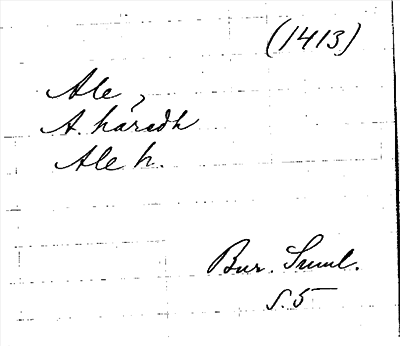 (1413)
Ale,
A. háradh
Ale h.
Bur. Suml.
S. 5